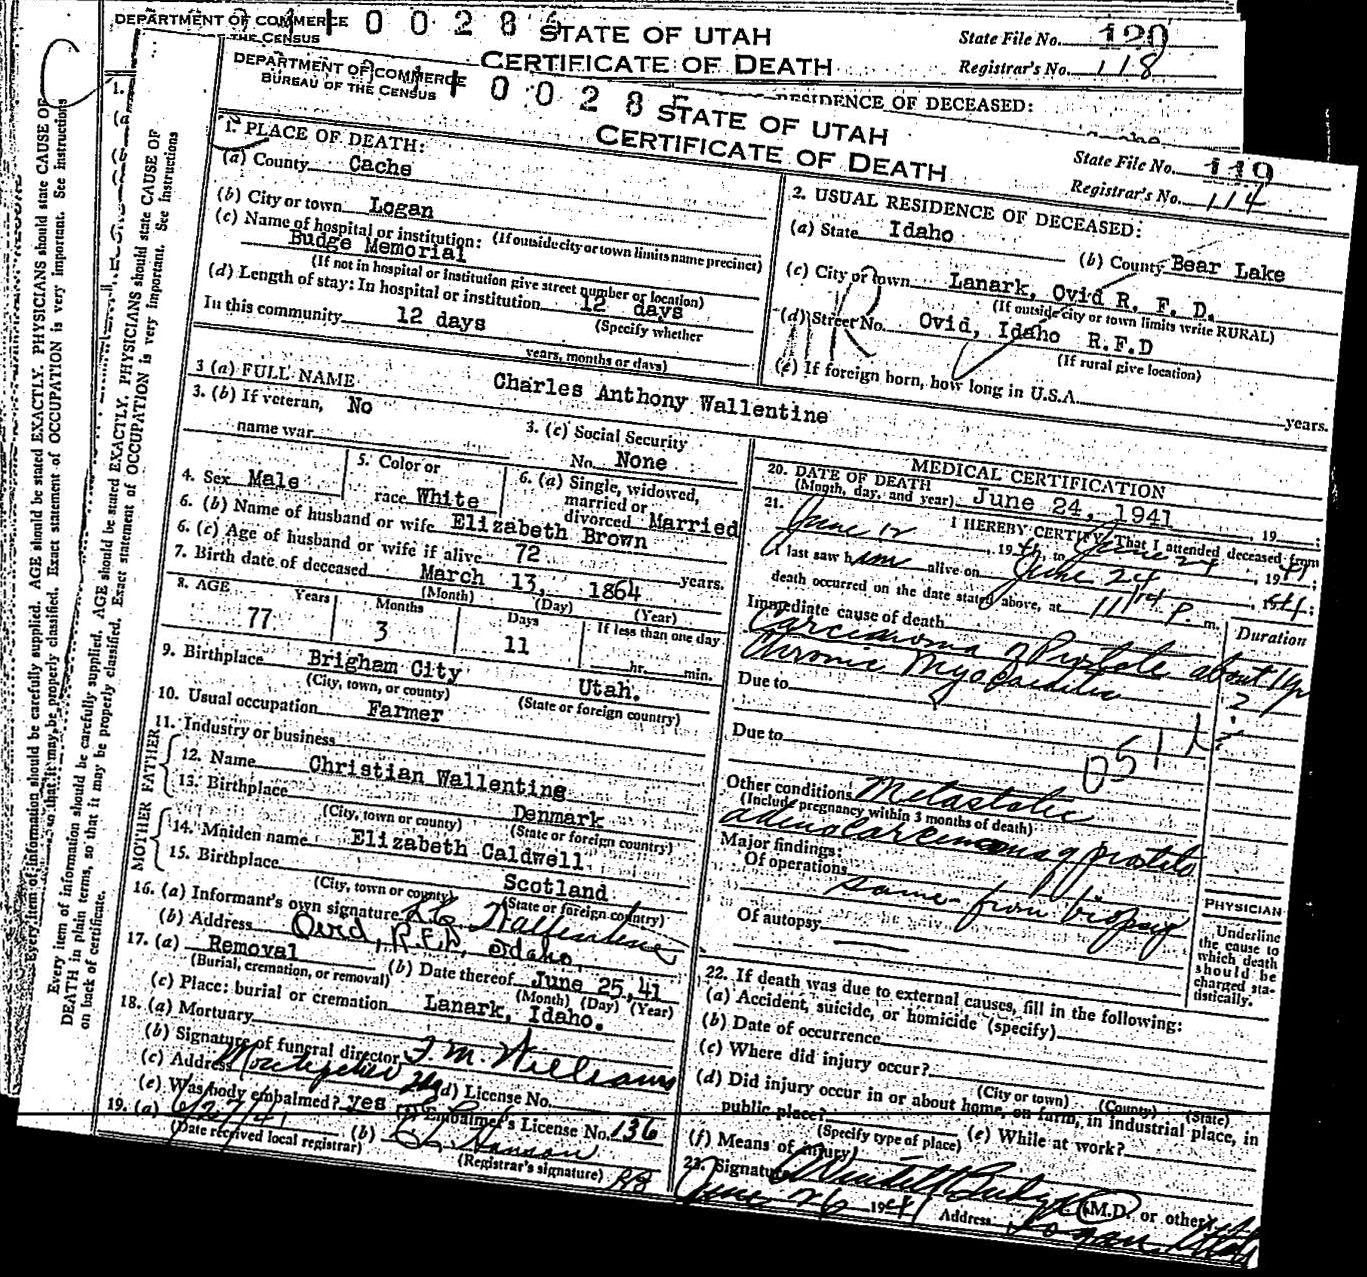 DEPARTMENT OF COMMERCE
THE CENSUS
0 0 2 8
STATE OF UTAH
CERTIFICATE OF DEATH
State File No. 120
Registrar's No. 118
RESIDENCE OF DECEASED:
DEPARTMENT OF COMMERCE
BUREAU OF THE CENSUS
0 0 2 8
STATE OF UTAH
CERTIFICATE OF DEATH
State File No. 119
Registrar's No. 114
1. PLACE OF DEATH:
(a) County Cache
(b) City or town Logan
(c) Name of hospital or institution: (If outside city or town limits name precinct)
Budge Memorial
(If not in hospital or institution give street number or location)
(d) Length of stay: In hospital or institution 12 days
In this community 12 days (Specify whether
years, months or days)
2. USUAL RESIDENCE OF DECEASED:
(a) State Idaho
(b) County Bear Lake
(c) City or town Lanark, Ovid R. F. D.
(If outside city or town limits write RURAL)
(d) Street No. Ovid, Idaho R.F.D
(If rural give location)
(e) If foreign born, how long in U.S.A. years.
3 (a) FULL NAME Charles Anthony Wallentine
3. (b) If veteran, No
name war
3. (c) Social Security
No. None
4. Sex Male
5. Color or
race White
6. (a) Single, widowed,
married or
divorced Married
6. (b) Name of husband or wife Elizabeth Brown
6. (c) Age of husband or wife if alive 72 years.
7. Birth date of deceased March 13, 1864
(Month) (Day) (Year)
8. AGE Years Months Days If less than one day
77 3 11 hr. min.
9. Birthplace Brigham City Utah.
(City, town, or county) (State or foreign country)
10. Usual occupation Farmer
11. Industry or business
FATHER
12. Name Christian Wallenting
13. Birthplace Denmark
(City, town or county) (State or foreign country)
MOTHER
14. Maiden name Elizabeth Caldwell
15. Birthplace Scotland
(City, town or county) (State or foreign country)
16. (a) Informant's own signature Wallentine
(b) Address Ovid, R.F.D, Idaho,
17. (a) Removal (b) Date thereof June 25, 41
(Burial, cremation, or removal) (Month) (Day) (Year)
(c) Place: burial or cremation Lanark, Idaho.
18. (a) Mortuary
(b) Signature of funeral director F. M. Williams
(c) Address Montpelier (d) License No.
(e) Was body embalmed? yes Embalmer's License No. 136
19. (a) 6/27/41 (b) Hanson
(Date received local registrar) (Registrar's signature)
MEDICAL CERTIFICATION
20. DATE OF DEATH
(Month, day, and year) June 24, 1941, 19
21. I HEREBY CERTIFY, That I attended deceased from
June 12, 1941, to June 24, 1941;
I last saw him alive on June 24, 1941;
death occurred on the date stated above, at 11 P. m.
Immediate cause of death Duration
Carcinoma of Prostate about 1 yr
Chronic Myocarditis ?
Due to
Due to
051
Other conditions Metastatic
(Include pregnancy within 3 months of death)
adenocarcinoma of prostate
Major findings:
Of operations same from biopsy
Of autopsy
PHYSICIAN
Underline
the cause to
which death
should be
charged sta-
tistically.
22. If death was due to external causes, fill in the following:
(a) Accident, suicide, or homicide (specify)
(b) Date of occurrence
(c) Where did injury occur?
(City or town) (County) (State)
(d) Did injury occur in or about home, on farm, in industrial place, in
public place?
(Specify type of place) (e) While at work?
(f) Means of injury
23. Signature Budge M.D. or other
June 26 1941 Address Logan, Utah
Every item of information should be carefully supplied. AGE should be stated EXACTLY. PHYSICIANS should state CAUSE OF
DEATH in plain terms, so that it may be properly classified. Exact statement of OCCUPATION is very important. See instructions
on back of certificate.